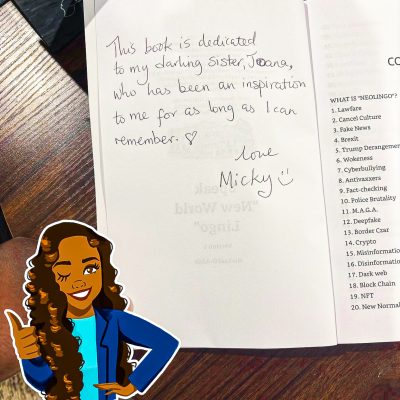 This book is dedicated
to my darling sister, Joana,
who has been an inspiration
to me for as long as I can
remember. ♡
love
Micky☺
CO
WHAT IS "NEOLINGO"?
1. Lawfare
2. Cancel Culture
3. Fake News
4. Brexit
5. Trump Derangemen
6. Wokeness
7. Cyberbullying
8. Antivaxxers
9. Fact-checking
10. Police Brutality
11. M.A.G.A.
12. Deepfake
13. Border Czar
14. Crypto
15. Misinformatio
16. Disinformatio
17. Dark web
18. Block Chain
19. NFT
20. New Normal